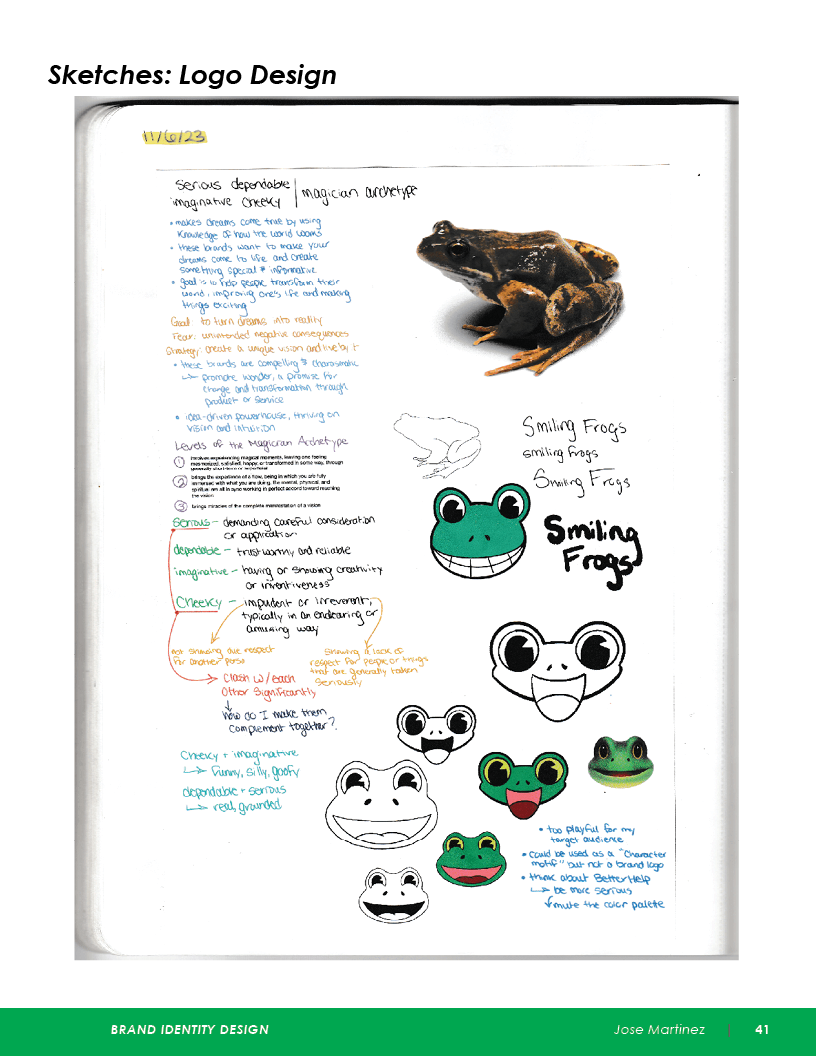 Sketches: Logo Design
11/6/23
Serious dependable
imaginative cheeky
magician archetype
• makes dreams come true by using
knowledge of how the world works
• these brands want to make your
dreams come to life and create
something special & informative
• goal is to help people transform their
world, improving one's life and making
things exciting
Goal: to turn dreams into reality
Fear: unintended negative consequences
Strategy: create a unique vision and live by it
• these brands are compelling & charismatic
↳ promote wonder, a promise for
change and transformation through
product or service
• idea-driven powerhouse, thriving on
vision and intuition
Levels of the Magician Archetype
1 involves experiencing magical moments, leaving one feeling
mesmerized, satisfied, happy, or transformed in some way, through
2 brings the experience of a flow, being in which you are fully
immersed with what you are doing, the mental, physical, and
spiritual are all in sync working in perfect accord toward reaching
the vision
3 brings miracles of the complete manifestation of a vision
Serious – demanding careful consideration
or application
dependable – trustworthy and reliable
imaginative – having or showing creativity
or inventiveness
Cheeky – impudent or irreverent,
typically in an endearing or
amusing way
not showing due respect
for another person
showing a lack of
respect for people or things
that are generally taken
seriously
Clash w/ each
other significantly
how do I make them
complement together?
Cheeky + imaginative
↳ funny, silly, goofy
dependable + serious
↳ real, grounded
Smiling Frogs
smiling frogs
Smiling Frogs
Smiling
Frogs
• too playful for my
target audience
• could be used as a "character
motif" but not a brand logo
• think about BetterHelp
↳ be more serious
↓ mute the color palette
BRAND IDENTITY DESIGN
Jose Martinez | 41